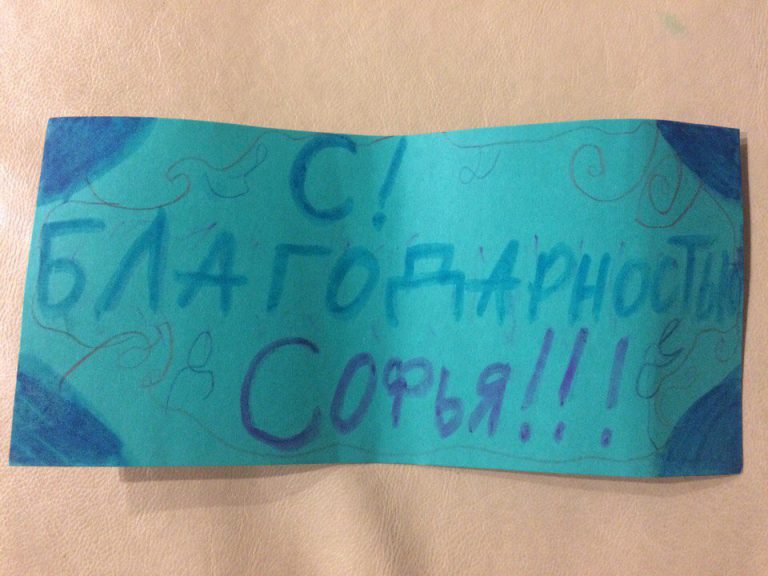 С!
БЛАГОДАРНОСТЬЮ
СОФЬЯ!!!